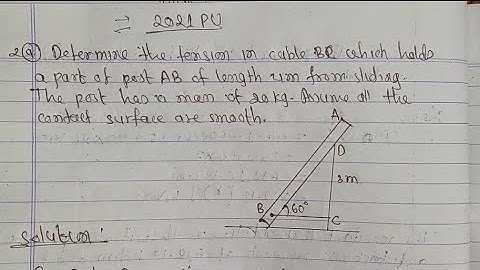 ⇒ 2021 PU
2(a) Determine the tension in cable BC which holds
a part of post AB of length 4m from sliding.
The post has a mass of 20 kg. Assume all the
contact surface are smooth.
A
D
3m
B
60°
C
Solution: